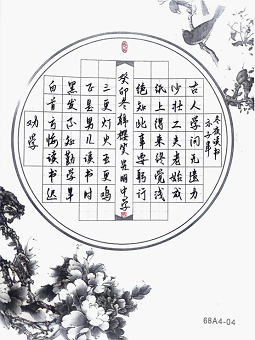 冬夜读书
示子聿
古人学问无遗力
少壮工夫老始成
纸上得来终觉浅
绝知此事要躬行
癸卯
三更灯火五更鸡
正是男儿读书时
黑发不知勤学早
白首方悔读书迟
劝学
68A4-04